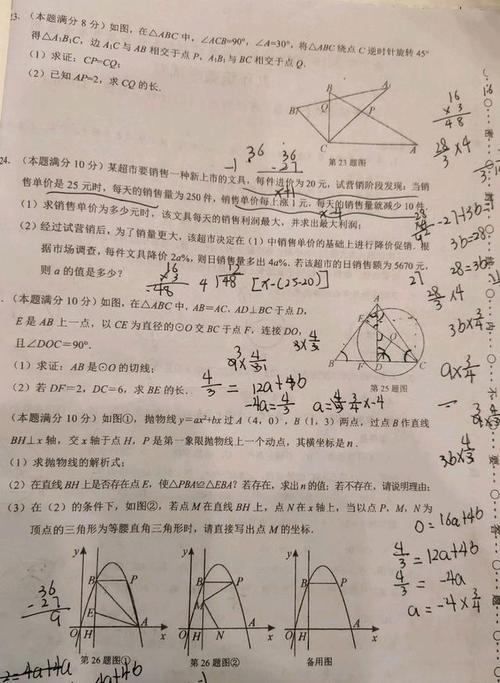 23. (本题满分 8 分) 如图,在△ABC 中,∠ACB=90°,∠A=30°,将△ABC 绕点 C 逆时针旋转 45°
得△A₁B₁C,边 A₁C 与 AB 相交于点 P,A₁B₁与 BC 相交于点 Q.
(1) 求证:CP=CQ;
(2) 已知 AP=2,求 CQ 的长.
B
A₁
B₁
Q
P
C
A
第 23 题图
16
×3
48
28/3 ×4
36
-1
36
-27
24. (本题满分 10 分) 某超市要销售一种新上市的文具,每件进价为 20 元,试营销阶段发现:当销
售单价是 25 元时,每天的销售量为 250 件,销售单价每上涨 1 元,每天的销售量就减少 10 件.
(1) 求销售单价为多少元时,该文具每天的销售利润最大,并求出最大利润;
(2) 经过试营销后,为了销量更大,该超市决定在(1)中销售单价的基础上进行降价促销.根
据市场调查,每件文具降价 2a%,则日销售量多出 4a%.若该超市的日销售额为 5670 元,
则 a 的值是多少?
16
×3
48
4
12
48
[x-(25-20)]
-27+3b=
3b=28
28=3b
27
28/3 ×4
3b×3/4
. (本题满分 10 分) 如图,在△ABC 中,AB=AC,AD⊥BC 于点 D,
E 是 AB 上一点,以 CE 为直径的⊙O 交 BC 于点 F,连接 DO,
且∠DOC=90°.
(1) 求证:AB 是⊙O 的切线;
(2) 若 DF=2,DC=6,求 BE 的长.
3×4/3
A
E
O
B
F
D
C
第 25 题图
4/3 = 12a+4b
-4a=4/3
a=4/3 3/4×-4
a×3/4
3b×4/3
(本题满分 10 分) 如图①,抛物线 y=ax²+bx 过 A(4,0),B(1,3)两点,过点 B 作直线
BH⊥x 轴,交 x 轴于点 H,P 是第一象限抛物线上一个动点,其横坐标是 n.
(1) 求抛物线的解析式;
(2) 在直线 BH 上是否存在点 E,使△PBA≌△EBA?若存在,求出 n 的值;若不存在,请说明理由;
(3) 在(2)的条件下,如图②,若点 M 在直线 BH 上,点 N 在 x 轴上,当以点 P、M、N 为
顶点的三角形为等腰直角三角形时,请直接写出点 M 的坐标.
0=16a+4b
4/3=12a+4b
4/3=-4a
a=-4×3/4
36
-27
9
y
B
P
E
O
H
A
x
第 26 题图①
y
B
P
M
O
H
N
x
第 26 题图②
y
B
P
O
H
x
备用图
=4a+4a
4a+4b